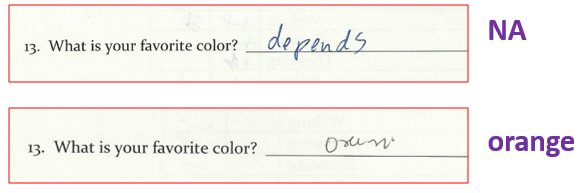 13. What is your favorite color? depends
NA
13. What is your favorite color?
orange